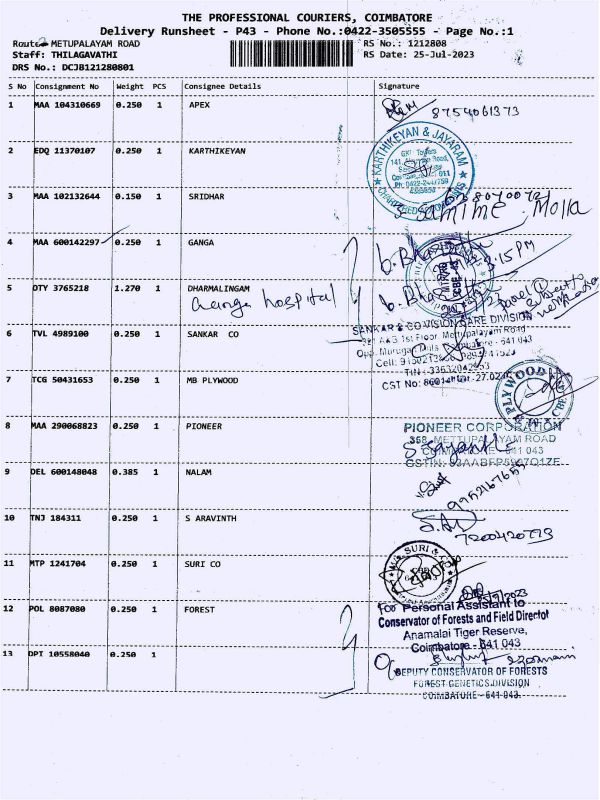 THE PROFESSIONAL COURIERS, COIMBATORE
Delivery Runsheet - P43 - Phone No.:0422-3505555 - Page No.:1
Route: METUPALAYAM ROAD RS No.: 1212808
Staff: THILAGAVATHI RS Date: 25-Jul-2023
DRS No.: DCJB121280801
S No Consignment No Weight PCS Consignee Details Signature
1 MAA 104310669 0.250 1 APEX
8754061373
KARTHIKEYAN & JAYARAM
CHARTERED ACCOUNTANTS
2 EDQ 11370107 0.250 1 KARTHIKEYAN
3 MAA 102132644 0.150 1 SRIDHAR
Molla
4 MAA 600142297 0.250 1 GANGA
3.15 PM
5 OTY 3765218 1.270 1 DHARMALINGAM
Ganga hospital
SANKAR & CO VISION CARE DIVISION
1st Floor, Mettupalayam Road
6 TVL 4989100 0.250 1 SANKAR CO
641 043
Cell:
TIN : 33632042953
CST No:
7 TCG 50431653 0.250 1 MB PLYWOOD
PLYWOOD
8 MAA 290068823 0.250 1 PIONEER
PIONEER CORPORATION
358, METTUPALAYAM ROAD
COIMBATORE - 641 043
9 DEL 600148048 0.385 1 NALAM
9952167655
10 TNJ 184311 0.250 1 S ARAVINTH
7200420773
11 MTP 1241704 0.250 1 SURI CO
SURI & CO
12 POL 8087080 0.250 1 FOREST
Personal Assistant to
Conservator of Forests and Field Director
Anamalai Tiger Reserve,
Coimbatore - 641 043
13 DPT 10558040 0.250 1
DEPUTY CONSERVATOR OF FORESTS
FOREST GENETICS DIVISION
COIMBATORE - 641 043.